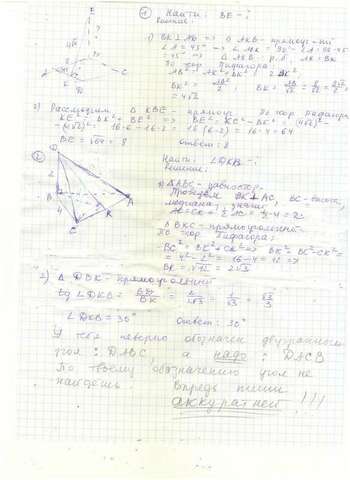 ① Найти: BE - ?
Решение:
1) BK ⊥ AK => Δ AKB - прямоуг-ый
∠A = 45° => ∠ABK = 90° -
= 45° => Δ AKB - р.б. AK = BK
По теор Пифагора
AB² = AK² + BK² = 2BK²
BK² = AB²/2
= 4√2
2) Рассмотрим Δ KBE - прямоуг По теор Пифагора
KE² = BK² + BE² => BE² = KE² - BK² = (4√6)² -
- (4√2)² = 16·6 - 16·2 = 16(6-2) = 16·4 = 64
BE = √64 = 8 Ответ: 8
② Найти: ∠DKB - ?
Решение:
1) Δ ABC - равностор.
Проведем BK ⊥ AC, BK - высота,
медиана, значит
AK = CK = ½ AC = ½·4 = 2
Δ BKC - прямоугольный
По теор Пифагора:
BC² = BK² + CK² => BK² = BC² - CK² =
= 4² - 2² = 16 - 4 = 12 =>
BK = √12 = 2√3
2) Δ DBK - прямоугольный
tg ∠DKB = BD/BK = 2/2√3 = 1/√3 = √3/3
∠DKB = 30° Ответ: 30°
У тебя неверно обозначен двугранный
угол: DABC, а надо: DACB
По твоему обозначению угол не
найдёшь. Впредь пиши
аккуратней!!!